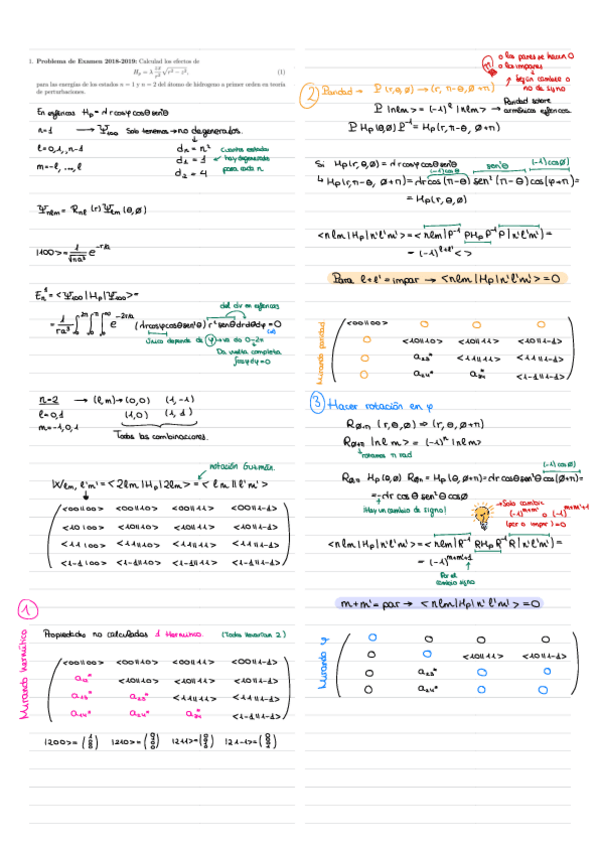 1. Problema de Examen 2018-2019: Calculad los efectos de
(1)
para las energías de los estados n = 1 y n = 2 del átomo de hidrógeno a primer orden en teoría
de perturbaciones.
En esféricas Hp = λrcosφcosθsenθ
n=1 → Ψ100 Solo tenemos → no degenerados.
l=0,1,..n-1
dn = n²
Cuantos estados
m=-l, ..., l
d1 = 1
hay degenerados
d2 = 4
para cada n
Ψnlm = Rnl (r) Ylm (θ,ø)
En¹ = <Ψ100|Hp|Ψ100> =
del dv en esféricas
Único depende de φ → va de 0-2π
Da vuelta completa
∫cosφdφ=0
n=2 → (l,m) → (0,0) (1,-1)
l=0,1 (1,0) (1,1)
m=-1,0,1
Todas las combinaciones.
notación Guzmán.
Wlm, l'm' = <2lm|Hp|2lm> = <lm||l'm'>
<00||00> <00||10> <00||11> <00||1-1>
<10||00> <10||10> <10||11> <10||1-1>
<11||00> <11||10> <11||11> <11||1-1>
<1-1||00> <1-1||10> <1-1||11> <1-1||1-1>
1
Mirando hermítico
Propiedades no calculadas 1 Hermítico. (Todos llevarían 2)
<00||00> <00||10> <00||11> <00||1-1>
a12* <10||10> <10||11> <10||1-1>
a13* a23* <11||11> <11||1-1>
a14* a24* a34* <1-1||1-1>
|200> = |210> = |211> = |21-1> =
o los pares se hacen 0
o los impares
Según cambie o
no de signo
2 Paridad → P (r,θ,ø) → (r, π-θ, ø+π)
P |nlm> = (-1)^l |nlm> → Paridad sobre
armónicos esféricos.
P Hp(θ,ø) P⁻¹ = Hp(r, π-θ, ø+π)
Si Hp(r,θ,ø) = λrcosφcosθsenθ
(-1)cosθ
(-1)cosø
↳ Hp(r, π-θ, ø+π) = λrcos(π-θ) sen²(π-θ) cos(φ+π) =
= Hp(r,θ,ø)
<nlm|Hp|n'l'm'> = <nlm|P⁻¹ PHpP⁻¹ P|n'l'm'> =
= (-1)^l+l' < >
Para l+l' = impar → <nlm|Hp|n'l'm'> = 0
Mirando paridad
<00||00> 0 0 0
0 <10||10> <10||11> <10||1-1>
0 a23* <11||11> <11||1-1>
0 a24* a34* <1-1||1-1>
3 Hacer rotación en φ
Rø+π (r,θ,ø) ⇒ (r,θ,ø+π)
Rø+π |nlm> = (-1)^m |nlm>
rotamos π rad
(-1)cosø
= -λr cosθ sen²θ cosø
¡Hay un cambio de signo!
Solo cambia
(-1)^m+m' o (-1)^m+m'+1
(par o impar) = 0
<nlm|Hp|n'l'm'> = <nlm|R⁻¹ RHpR⁻¹ R|n'l'm'> =
= (-1)^m+m'+1
Por el
cambio signo
m+m' = par → <nlm|Hp|n'l'm'> = 0
Mirando φ
0 0 0 0
0 0 <10||11> <10||1-1>
0 a23* 0 0
0 a24* 0 0